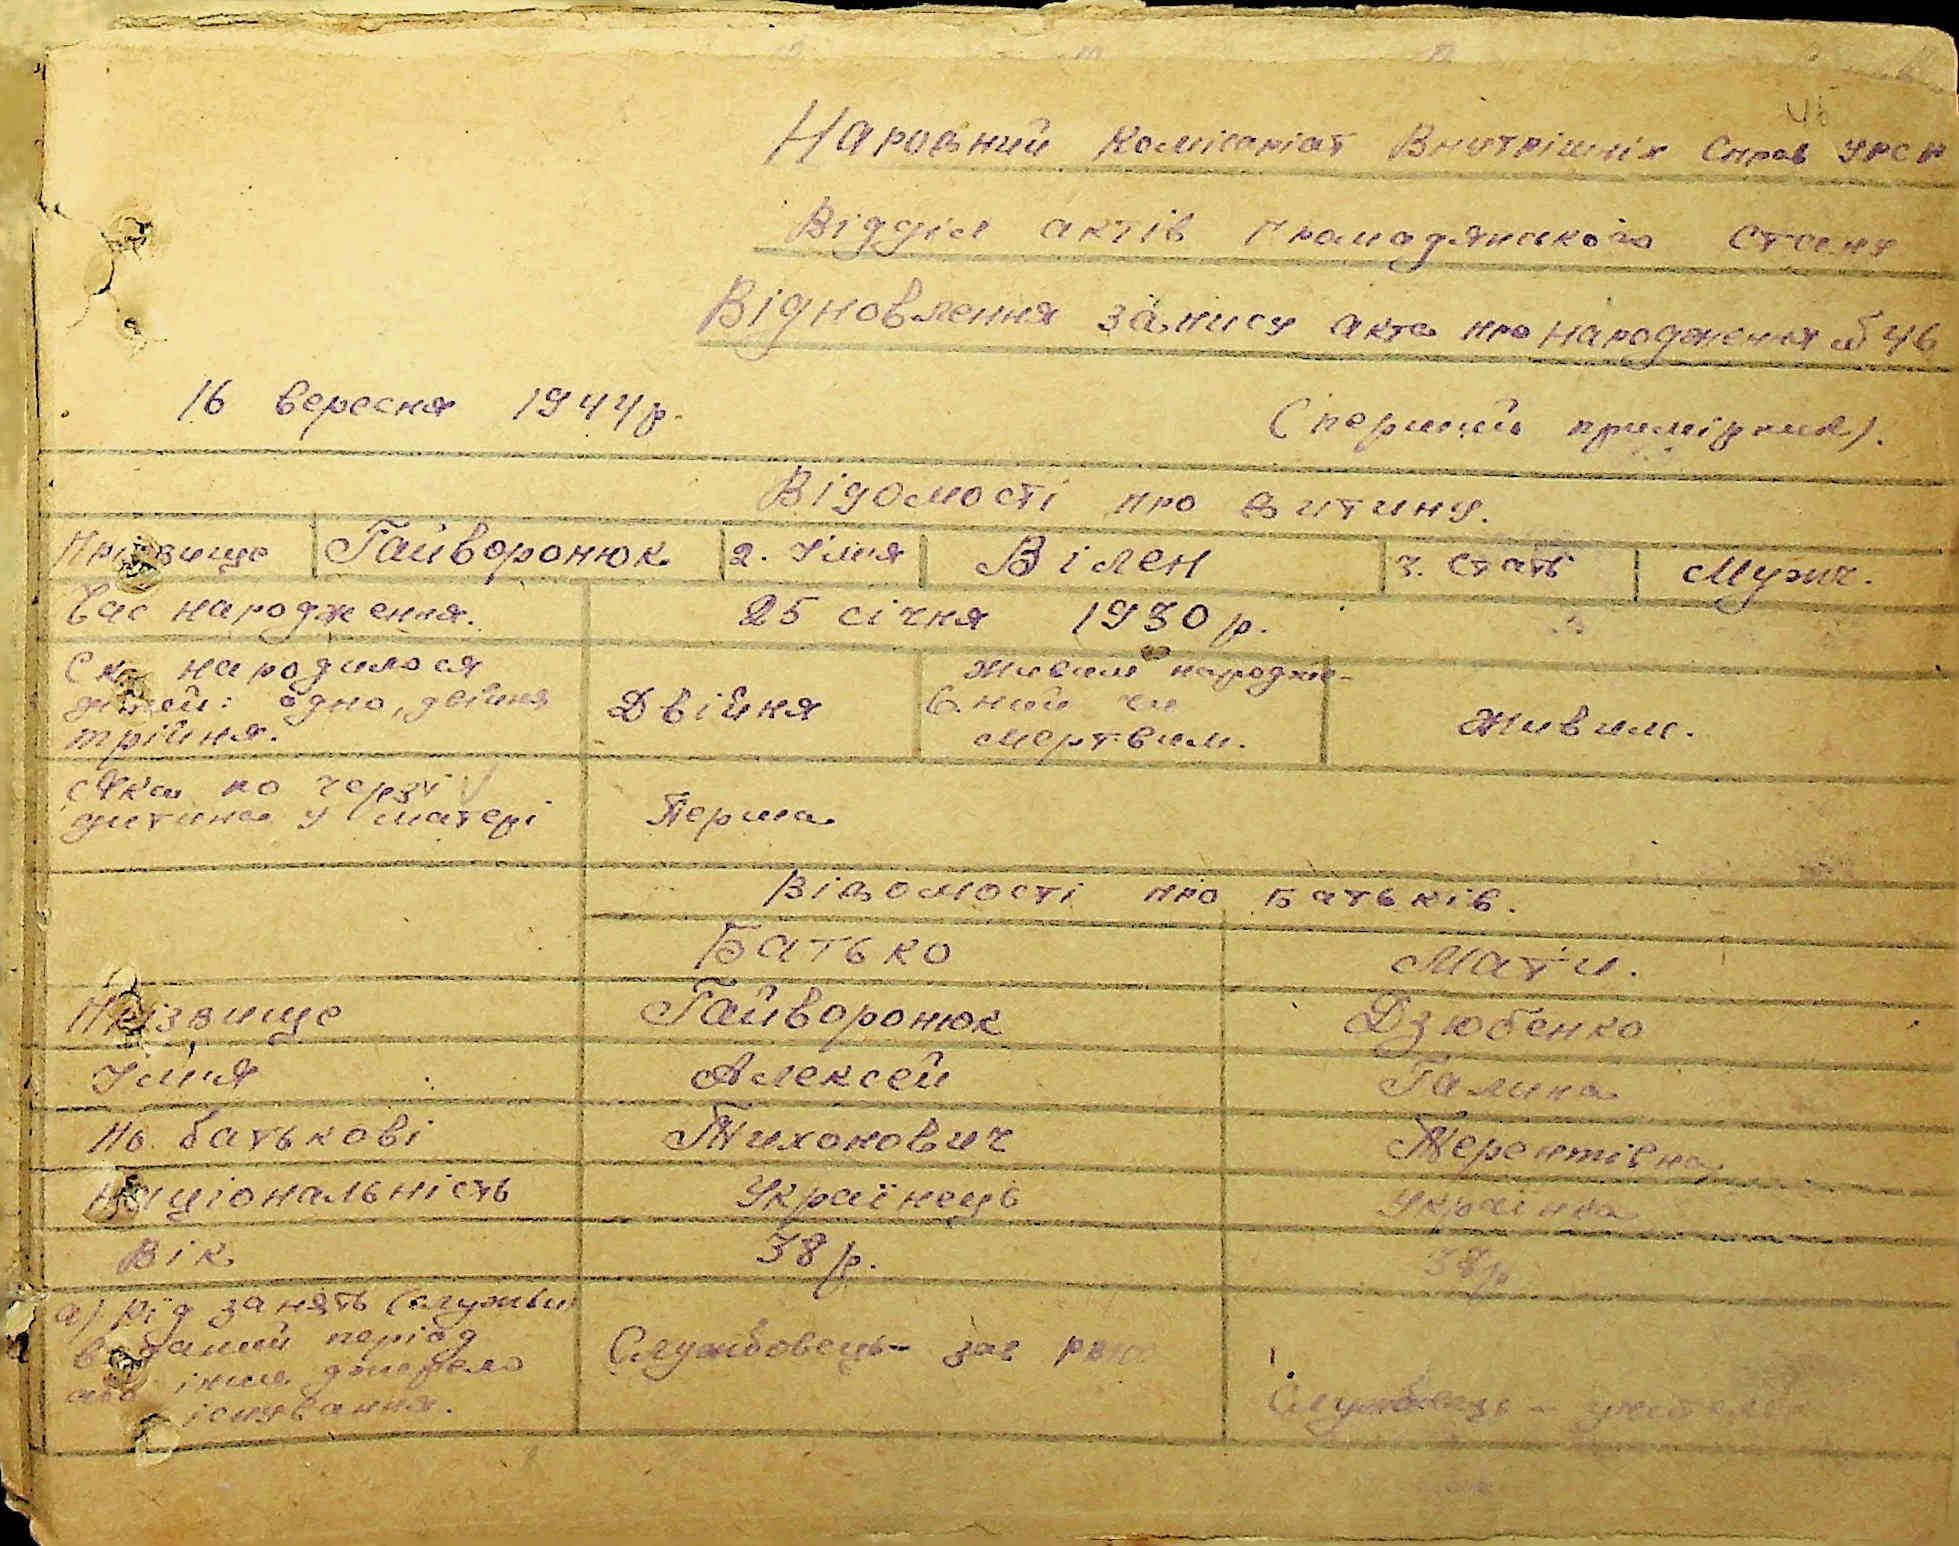 Народний Комісаріат Внутрішніх Справ УРСР
Відділ актів громадянського стану
Відновлення запису акта про народження № 46
16 вересня 1944 р.
(перший примірник).
Відомості про дитину.
Прізвище Гайворонюк 2. Ім'я Вілен 3. Стать Мужч.
Час народження. 25 січня 1930 р.
Ск. народилося
дітей: одно, двійня
трійня.
Двійня
Живим народже-
6. ний чи
мертвим.
Живим.
Яка по черзі
дитина у матері
Перша
Відомості про батьків.
Батько Мати.
Прізвище Гайворонюк Дзюбенко
Ім'я Алексей Галина
По батькові Тихонович Терентівна
Національність Українець Українка
Вік 38 р.
а). Рід занять (служби)
в даний період
або інше джерело
існування.
Службовець - зав
Службовець -